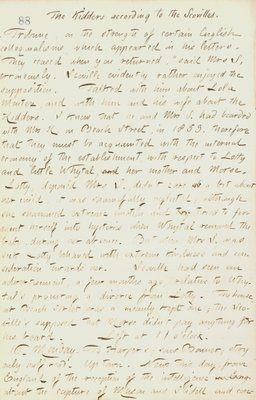 88
The Kidders according to the Scovilles.
Tribune, on the strength of certain English
colloquialisms which appeared in his letters.
They ceased when you returned," said Mrs S,
Scoville evidently rather enjoyed the
supposition. Talked with him about Lola
Montez and with him and his wife about the
Kidders. I knew that he and Mrs S. had boarded
with Mrs K in Beach Street, in 1853, therefore
that they must be acquainted with the internal
economy of the establishment with respect to Lotty
and little Whytal and her mother and Morse.
Lotty, Mrs S. didn't care a bit about
her child; it was neglected; although
she shammed extreme emotion and tried to
herself into hysterics when Whytal removed the
during her absence. But when Mrs S. was
Lotty behaved with extreme kindness and
towards her. Scoville had seen an
advertisement, a few months ago relative to
procuring a divorce from Lotty. The house
at Beach Street was a one; the
supposed that Morse didn't pay anything for
his board. Left at 11 o'clock.
Monday. To Harper's; saw Bonner, story
only Up town. News this day, from
England of the reception of the intelligence
about the capture of Mason and Slidell and